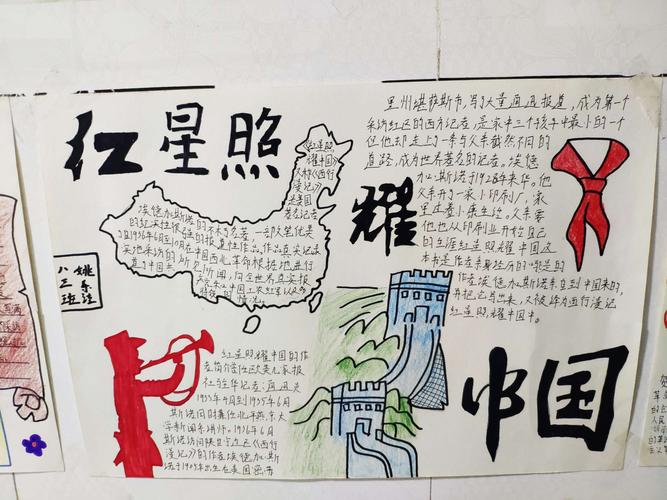 红星照
耀
中国
八三班
姚乐洼
《红星照
耀中国》
又称《西行
漫记》
是美国
著名记者
埃德加·斯诺的不朽名著，一部文笔优美
的纪实性很强的报道性作品，作品真实记录
了自1936年6月至10月在中国西北革命根据地进行
实地采访的所见所闻，向全世界真实报
道了中国
和中国工农红军以及
情况。
里州堪萨斯市，写了大量通迅报道，成为第一个
采访红区的西方记者，是家中三个孩子中最小的一个
但他却走上了一条与父亲截然不同的
道路，成为世界著名的记者，埃德
加·斯诺于1928年来华，他
父亲开了一家小印刷厂，家
里
他也从印刷业开始自己
的生涯红星照耀中国这
本书是作者亲身经历的
作者埃德加·斯诺亲自到中国来的，
并把它写出来，又被译为西行漫记
红星照耀中国中。
红星照耀中国的作
者简介曾任欧美几家报
社驻华记者、通讯员
1933年4月到1935年6月
斯诺同时兼任北平燕京大
学新闻系讲师。1936年6月
斯诺访问陕甘宁边区《西行
漫记》的作者埃德加·斯
诺于1905年出生在美国密苏